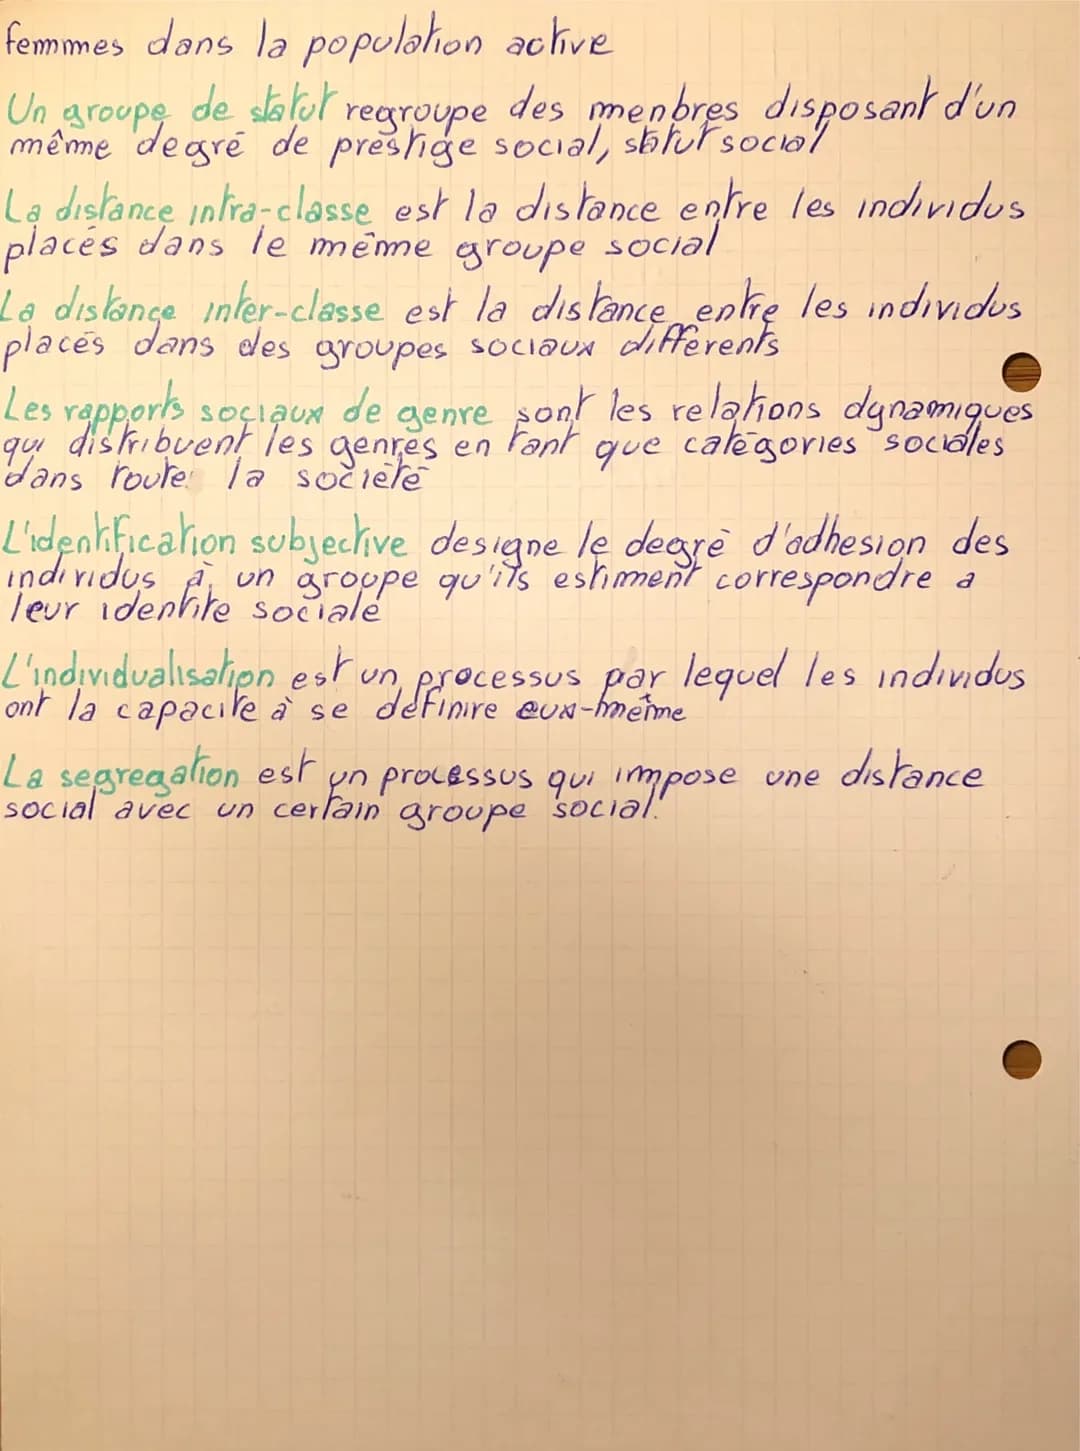 femmes dans la population active
Un groupe de statut regroupe des menbres disposant d'un
même degré de prestige social, statut social
La distance intra-classe est la distance entre les individus
placés dans le même groupe social
La distance inter-classe est la distance entre les individus
placés dans des groupes sociaux différents
Les rapports sociaux de genre sont les relations dynamiques
qui distribuent les genres en tant que catégories sociales
dans toute la société
L'identification subjective designe le degré d'adhesion des
individus à un groupe qu'ils estiment correspondre a
leur identite sociale
L'individualisation est un processus par lequel les individus
ont la capacite à se définire eux-même
La segregation est un processus qui impose une distance
social avec un certain groupe social.